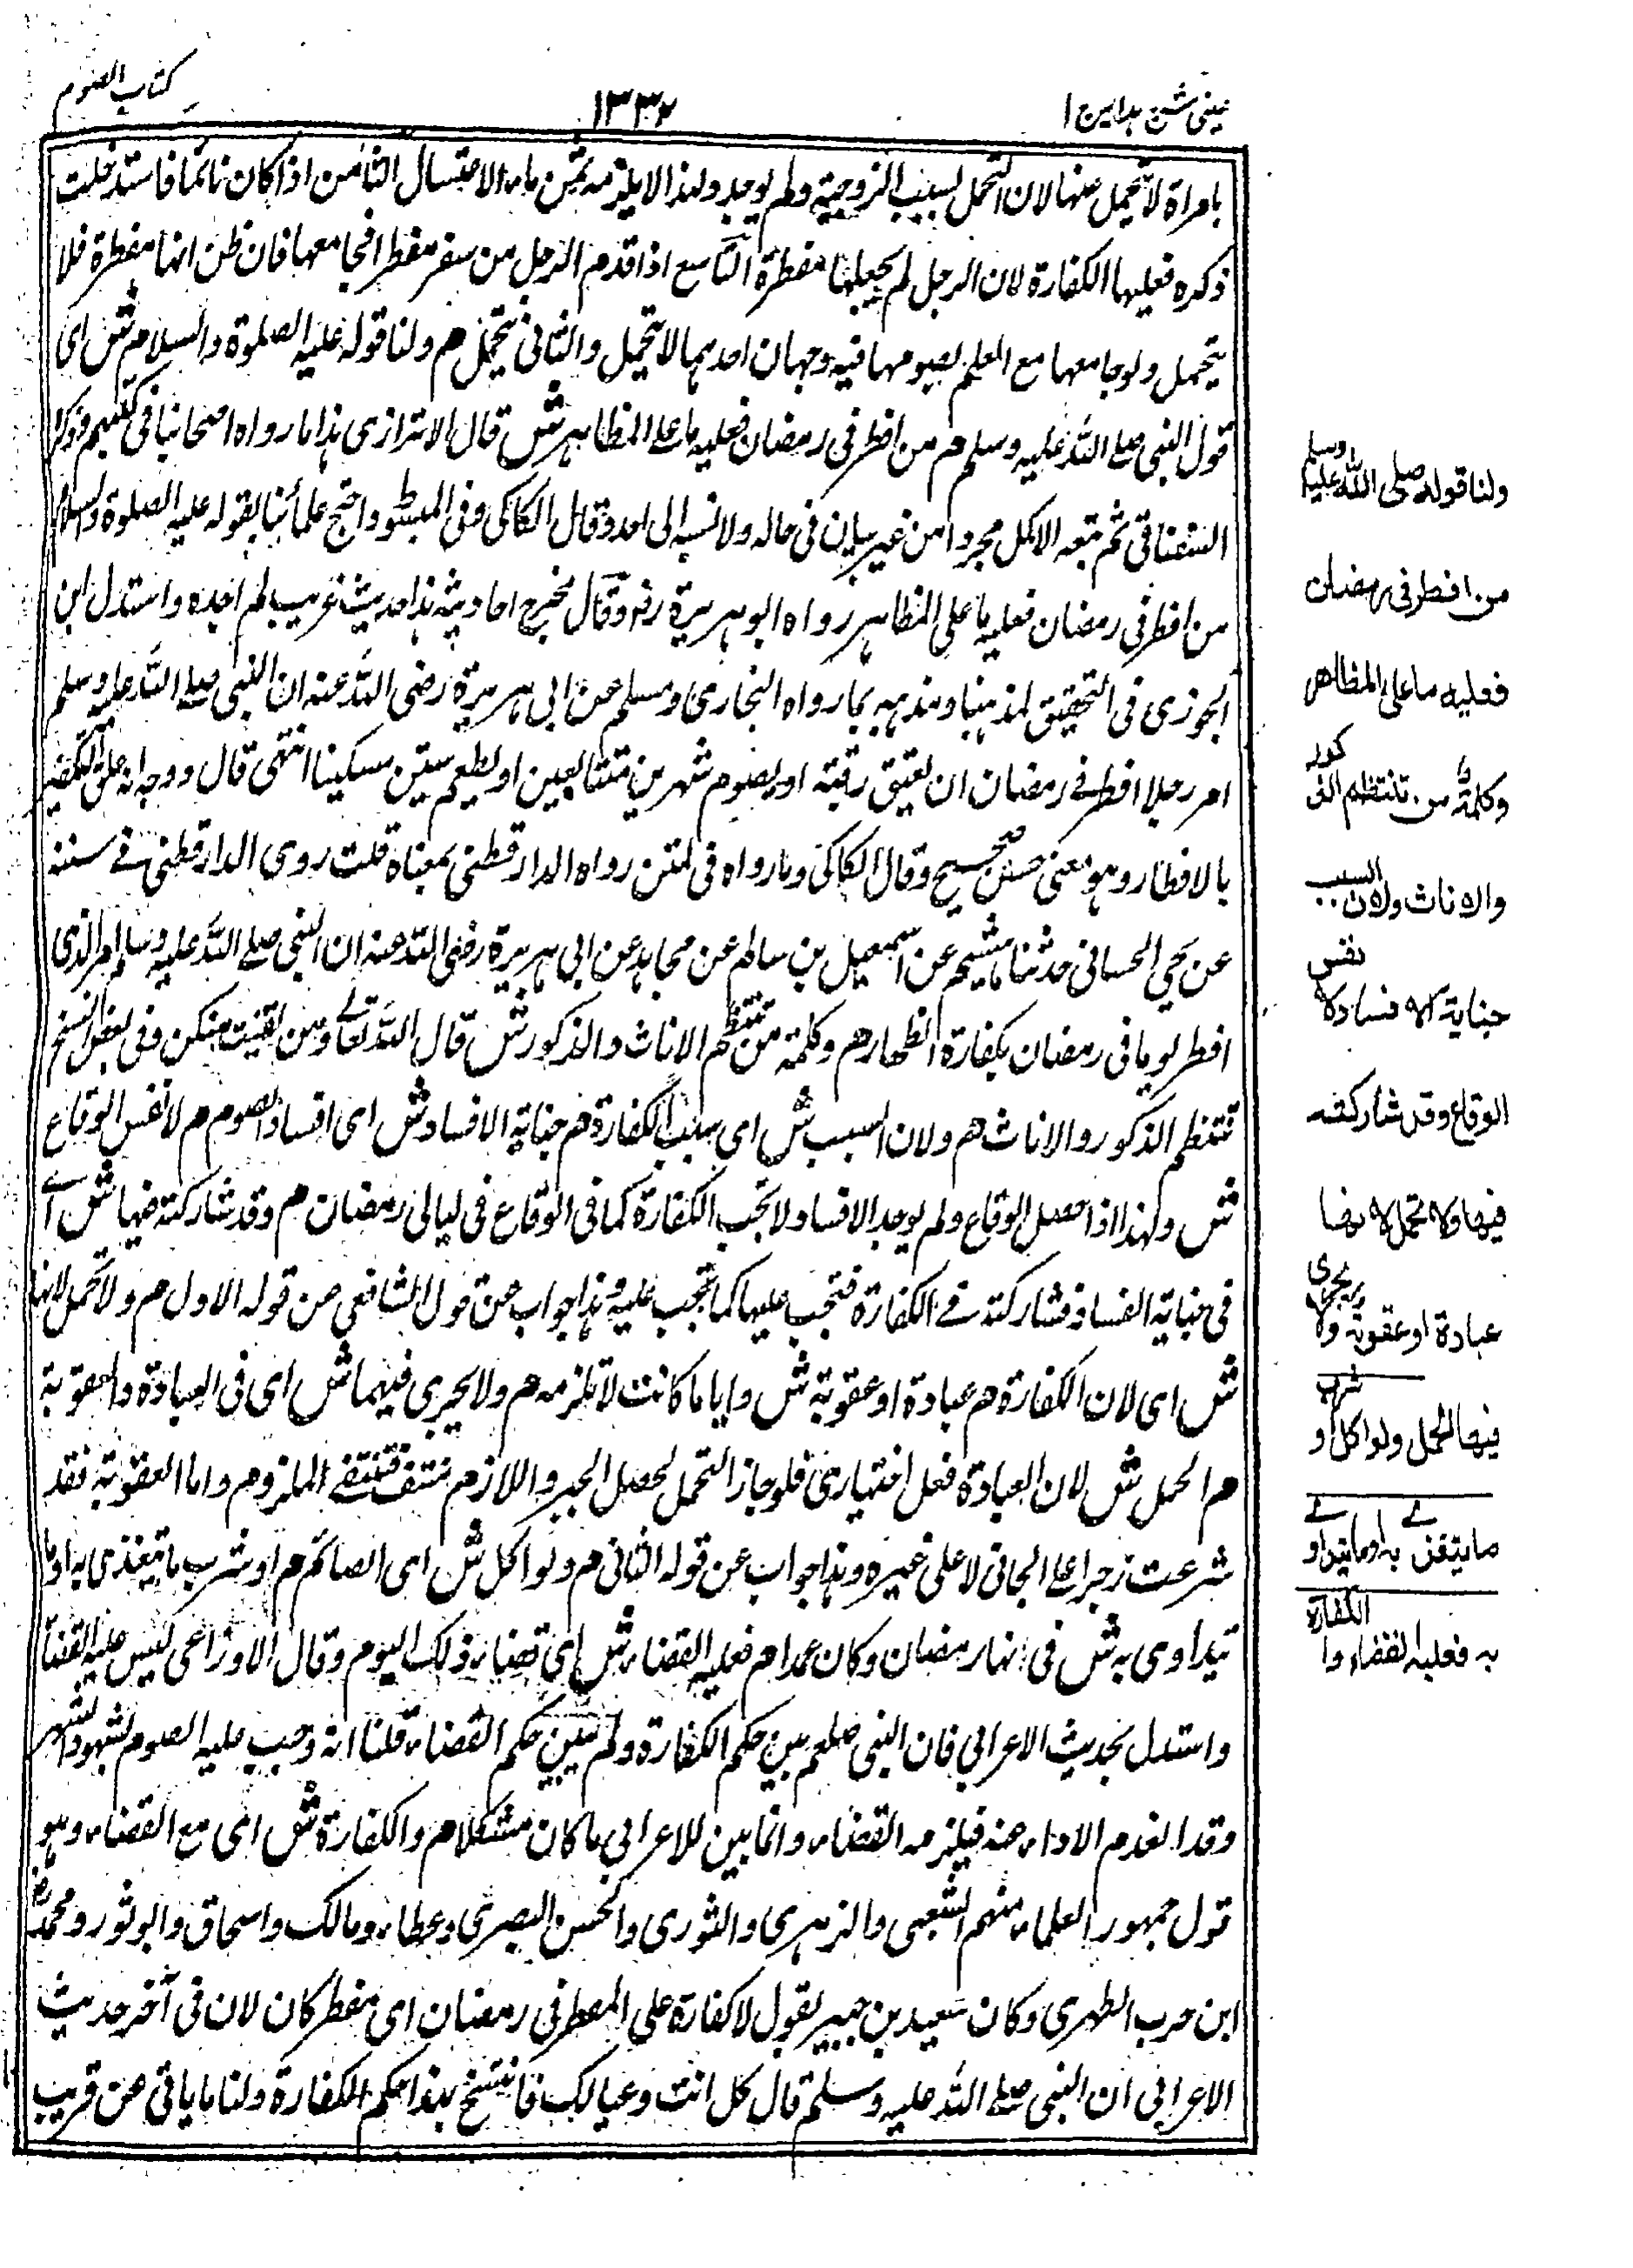 عینی شرح ہدایہ ج ١
١٣٣٢
کتاب الصوم
بامراة لا تحمل عنها لان التحمل بسبب الزوجية ولم يوجد ولهذا لا يلزمه ثمن ماء الاغتسال الثامن اذا كان نائما فاستدخلت
ذكره فعليها الكفارة لان الرجل لم يجعلها مفطرة التاسع اذا قدم الرجل من سفر مفطرا فجامعها فان ظن انها مفطرة فلا
يتحمل ولو جامعها مع العلم بصومها فيه وجهان احدهما لا يتحمل والثانى يتحمل م ولنا قوله عليه الصلوة والسلام ش اى
قول النبى صلے اللہ علیہ وسلم م من افطر فى رمضان فعليه ما على المظاهر ش قال الاترازى هذا ما رواه اصحابنا فى كتبهم وذكره
السغناقى ثم تبعه الاكمل مجردا من غير بيان فى حاله ولا نسبه الى احد وقال الكاكى وفى المبسوط واحتج علمائنا بقوله عليه الصلوة والسلام
من افطر فى رمضان فعليه ما على المظاهر رواه ابو هريرة رض وقال مخرج احاديثه هذا حديث غريب لم اجده واستدل ابن
الجوزى فى التحقيق لمذهبنا ومذهبه بما رواه البخارى ومسلم عن ابى هريرة رضى اللہ عنه ان النبى صلے اللہ علیہ وسلم
امر رجلا افطر فے رمضان ان يعتق رقبة او يصوم شهرين متتابعين او يطعم ستين مسكينا انتهى قال ووجه انه علق التكفير
بالافطار وهو معنى حسن صحيح وقال الكاكى وما رواه فى المتن رواه الدارقطنى بمعناه قلت روى الدارقطنى فے سننه
عن يحيى الحمانى حدثنا هشيم عن اسمعيل بن سالم عن مجاهد عن ابى هريرة رضى اللہ عنه ان النبى صلے اللہ علیہ وسلم امر الذى
افطر يوما فى رمضان بكفارة الظهار م وكلمة من تنتظم الاناث والذكور ش قال اللہ تعالے ومن يقنت منكن وفى بعض النسخ
تنتظم الذكور والاناث م ولان السبب ش اى سبب الكفارة م جناية الافساد ش اى افساد الصوم م لا نفس الوقاع
ش ولهذا اذا حصل الوقاع ولم يوجد الافساد لا تجب الكفارة كما فى الوقاع فى ليالى رمضان م وقد شاركته فيها ش اے
فى جناية الفساد فشاركته فے الكفارة فتجب عليها كما تجب عليه وهذا جواب عن قول الشافعى عن قوله الاول م ولا تحمل لانها
ش اى لان الكفارة م عبادة او عقوبة ش وايا ما كانت لا تلزمه م ولا يجرى فيهما ش اى فى العبادة والعقوبة
م الحمل ش لان العبادة فعل اختيارى فلو جاز التحمل لحصل الجبر واللازم منتف فينتفے الملزوم واما العقوبة فقد
شرعت زجرا على الجانى لا على غيره وهذا جواب عن قوله الثانى م ولو اكل ش اى الصائم م او شرب ما يتغذى به او ما
يتداوى به ش فى نهار رمضان وكان عمدا م فعليه القضاء ش اى قضاء ذلك اليوم وقال الاوزاعى ليس عليه القضاء
واستدل بحديث الاعرابي فان النبى صلعم بين حكم الكفارة ولم يبين حكم القضاء قلنا انه وجب عليه الصوم بشهود الشهر
وقد انعدم الاداء منه فيلزمه القضاء وانما بين للاعرابي ما كان مشكلا م والكفارة ش اى مع القضاء وهو
قول جمهور العلماء منهم الشعبى والزهرى والثورى والحسن البصرى وعطاء ومالك واسحاق وابو ثور ومحمد
ابن حرب الطهرى وكان سعيد بن جبير يقول لا كفارة على المفطر فى رمضان اى مفطر كان لان فى آخر حديث
الاعرابي ان النبى صلے اللہ علیہ وسلم قال كل انت وعيالك فانتسخ بهذا حكم الكفارة ولنا ما ياتى عن قريب
ولنا قوله صلى الله عليه وسلم
من افطر فى رمضان
فعليه ما على المظاهر
وكلمة من تنتظم الذكور
والاناث ولان السبب
جناية الافساد لا نفس
الوقاع وقد شاركته
فيها ولا تحمل لانها
عبادة او عقوبة ولا يجرى
فيها الحمل ولو اكل او شرب
ما يتغذى به او ما يتداوى
به فعليه القضاء والكفارة